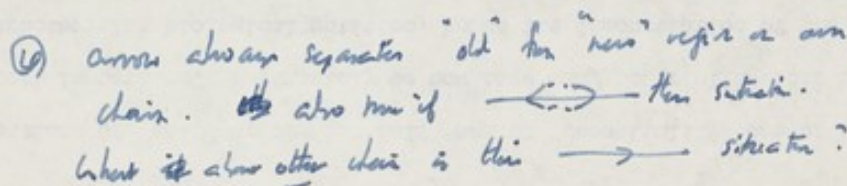 (6) arrow always separates "old" from "new" region on own
chain. also true if this situation.
What about other chain in this situation?